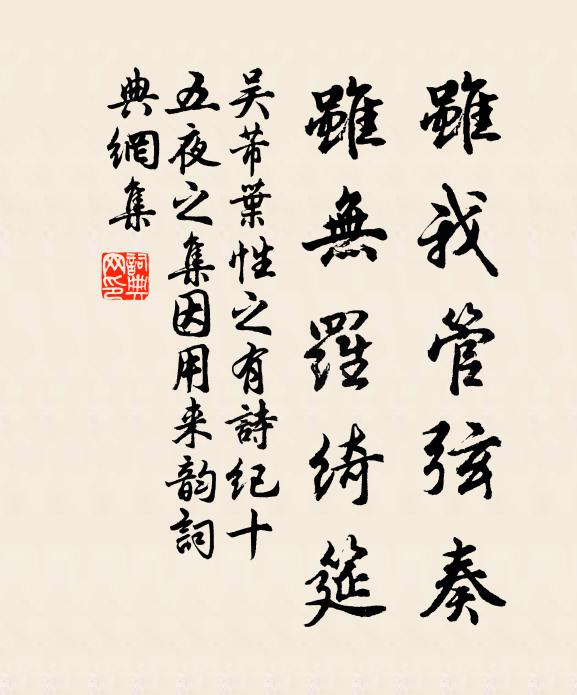 雖我管弦奏
雖無羅綺筵
吴芾葉性之有詩紀十
五夜之集因用来韵詞
典網集
詞典
网印